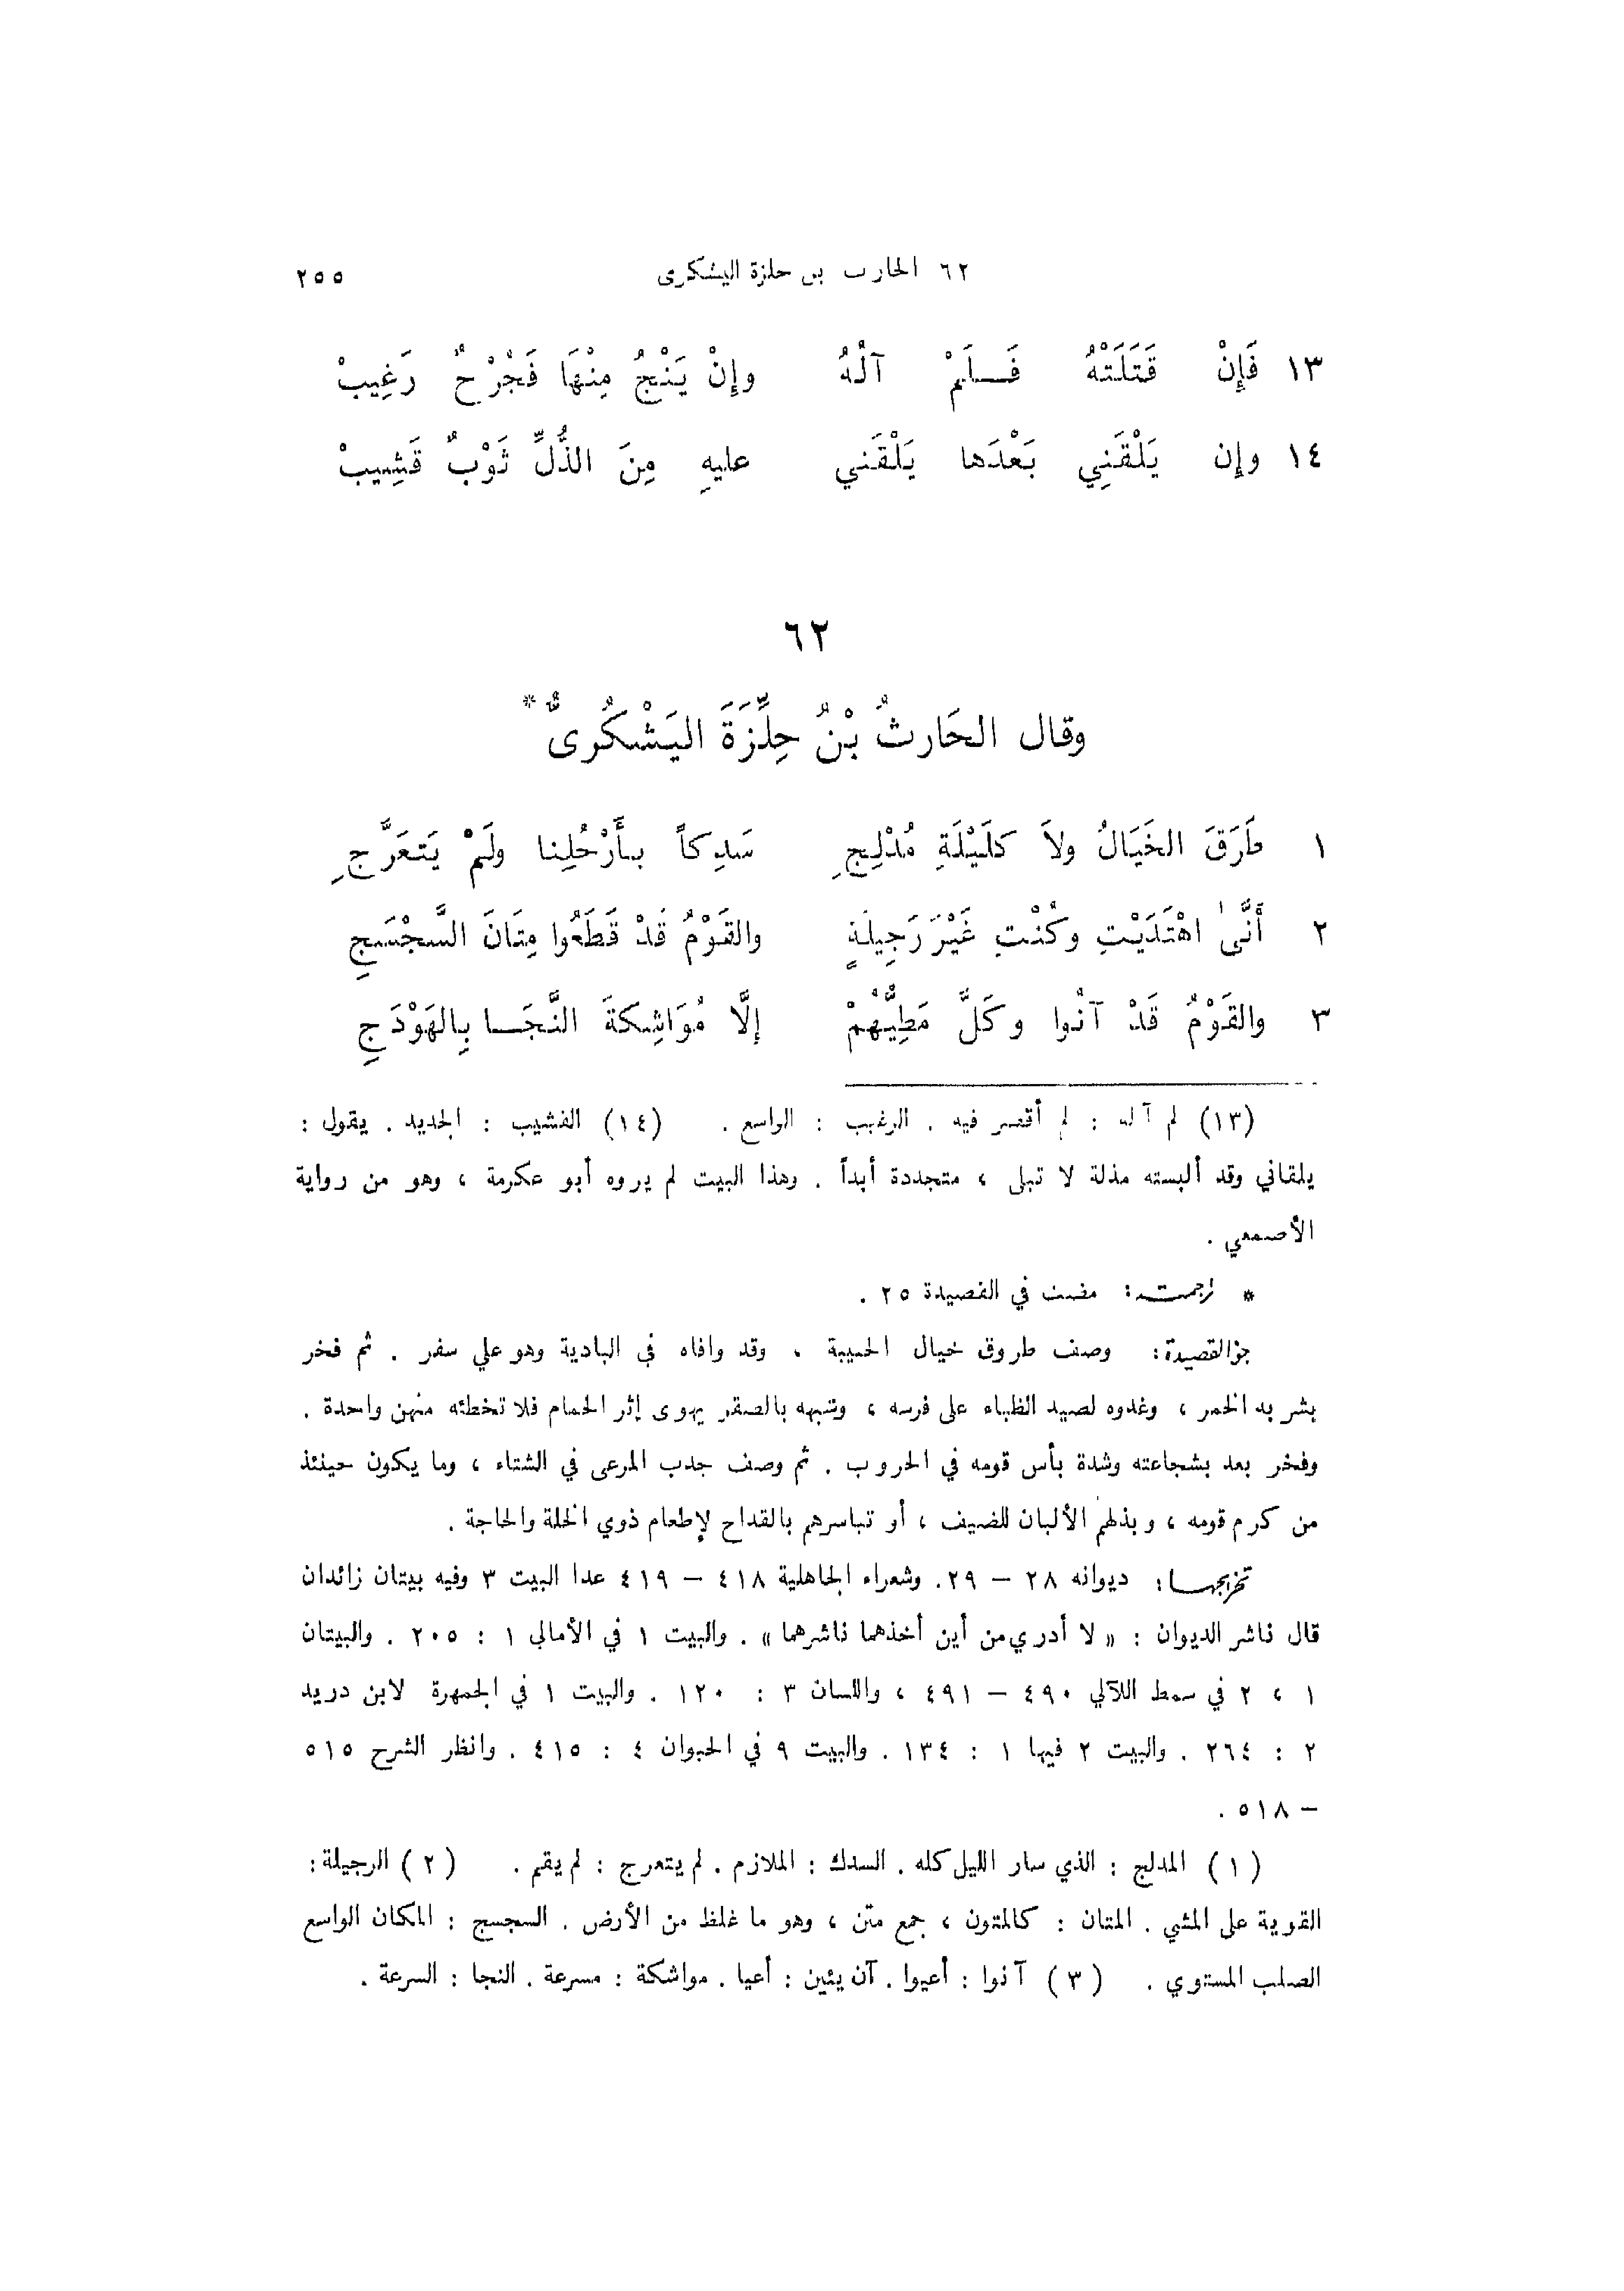 ٦٢ الحارث بن حلزة اليشكرى ٢٥٥
١٣ فَإِنْ قَتَلَتْهُ فَلَمْ آلُهُ وإِنْ يَنْجُ مِنْهَا فَجُرْحٌ رَغِيبْ
١٤ وإن يَلْقَنِي بَعْدَها يَلْقَني عليهِ مِنَ الذُّلِّ ثَوْبٌ قَشِيبْ
٦٢
وقال الحَارثُ بْنُ حِلِّزَةَ اليَشْكُرىُّ *
١ طَرَقَ الخَيَالُ ولاَ كَلَيْلَةِ مُدْلِجِ سَدِكاً بِأَرْحُلِنا ولَمْ يَتَعَرَّجِ
٢ أَنَّىٰ اهْتَدَيْتِ وكُنْتِ غَيْرَ رَجِيلَةٍ والقَوْمُ قَدْ قَطَعُوا مِتَانَ السَّجْسَجِ
٣ والقَوْمُ قَدْ آنُوا وكَلَّ مَطِيُّهُمْ إلَّا مُوَاشِكَةَ النَّجَا بِالهَوْدَجِ
(١٣) لم آله : لم أقصر فيه . الرغيب : الواسع . (١٤) القشيب : الجديد . يقول :
يلقاني وقد ألبسته مذلة لا تبلى ، متجددة أبداً . وهذا البيت لم يروه أبو عكرمة ، وهو من رواية
الأصمعي .
* ترجمته: مضت في القصيدة ٢٥ .
جو القصيدة: وصف طروق خيال الحبيبة ، وقد وافاه في البادية وهو علي سفر . ثم فخر
بشربه الخمر ، وغدوه لصيد الظباء على فرسه ، وشبهه بالصقر يهوى إثر الحمام فلا تخطئه منهن واحدة .
وفخر بعد بشجاعته وشدة بأس قومه في الحروب . ثم وصف جدب المرعى في الشتاء ، وما يكون حينئذ
من كرم قومه ، وبذلهم الألبان للضيف ، أو تياسرهم بالقداح لإطعام ذوي الخلة والحاجة .
تخريجها: ديوانه ٢٨ – ٢٩. وشعراء الجاهلية ٤١٨ – ٤١٩ عدا البيت ٣ وفيه بيتان زائدان
قال ناشر الديوان : « لا أدري من أين أخذهما ناشرهما » . والبيت ١ في الأمالي ١ : ٢٠٥ . والبيتان
١ ، ٢ في سمط اللآلي ٤٩٠ – ٤٩١ ، واللسان ٣ : ١٢٠ . والبيت ١ في الجمهرة لابن دريد
٢ : ٢٦٤ . والبيت ٢ فيها ١ : ١٣٤ . والبيت ٩ في الحيوان ٤ : ٤١٥ . وانظر الشرح ٥١٥
– ٥١٨ .
(١) المدلج : الذي سار الليل كله . السدك : الملازم . لم يتعرج : لم يقم . (٢) الرجيلة :
القوية على المشي . المتان : كالمتون ، جمع متن ، وهو ما غلظ من الأرض . السجسج : المكان الواسع
الصلب المستوي . (٣) آنوا : أعيوا . آن يئين : أعيا . مواشكة : مسرعة . النجا : السرعة .